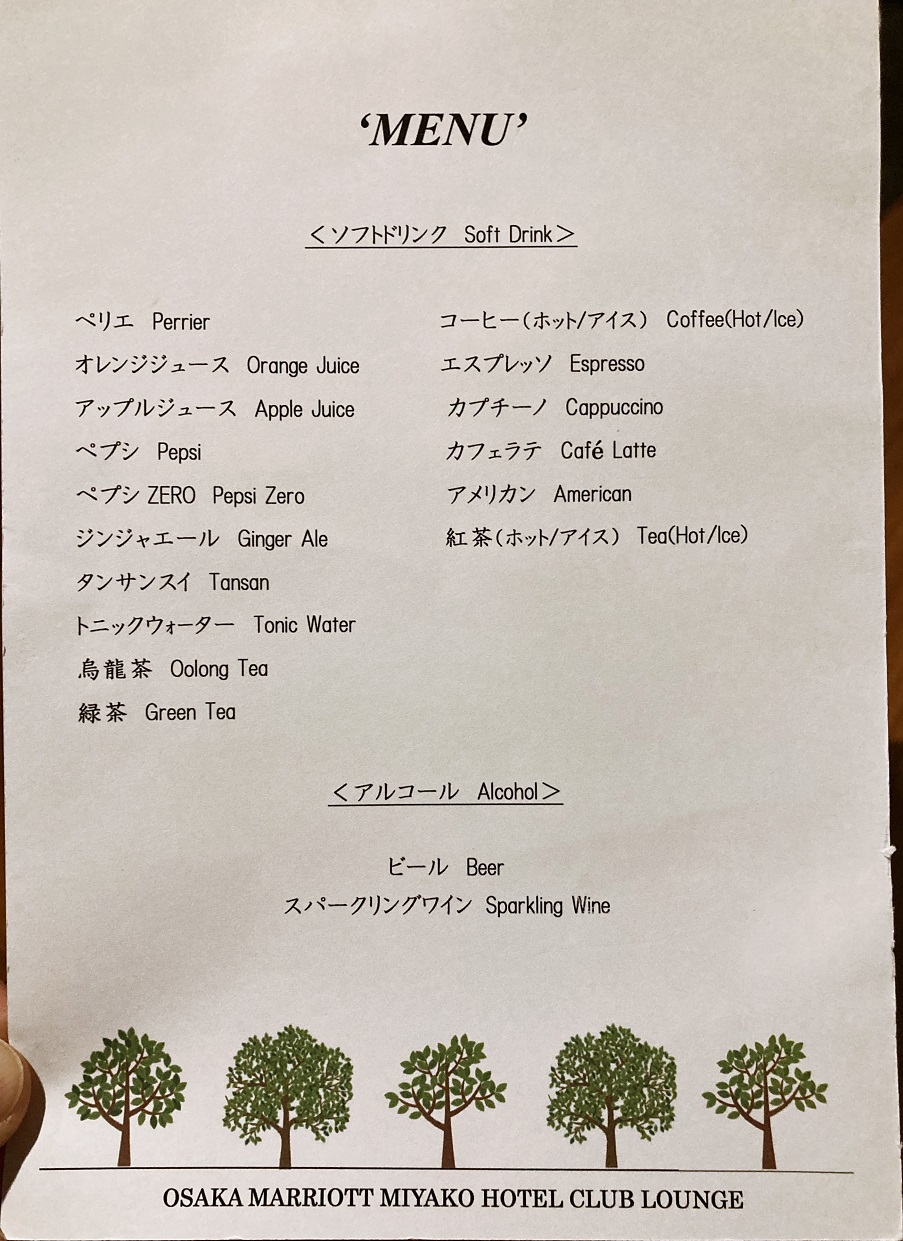 ‘MENU’
＜ソフトドリンク Soft Drink＞
ペリエ Perrier
オレンジジュース Orange Juice
アップルジュース Apple Juice
ペプシ Pepsi
ペプシ ZERO Pepsi Zero
ジンジャエール Ginger Ale
タンサンスイ Tansan
トニックウォーター Tonic Water
烏龍茶 Oolong Tea
緑茶 Green Tea
コーヒー（ホット/アイス） Coffee(Hot/Ice)
エスプレッソ Espresso
カプチーノ Cappuccino
カフェラテ Café Latte
アメリカン American
紅茶（ホット/アイス） Tea(Hot/Ice)
＜アルコール Alcohol＞
ビール Beer
スパークリングワイン Sparkling Wine
OSAKA MARRIOTT MIYAKO HOTEL CLUB LOUNGE